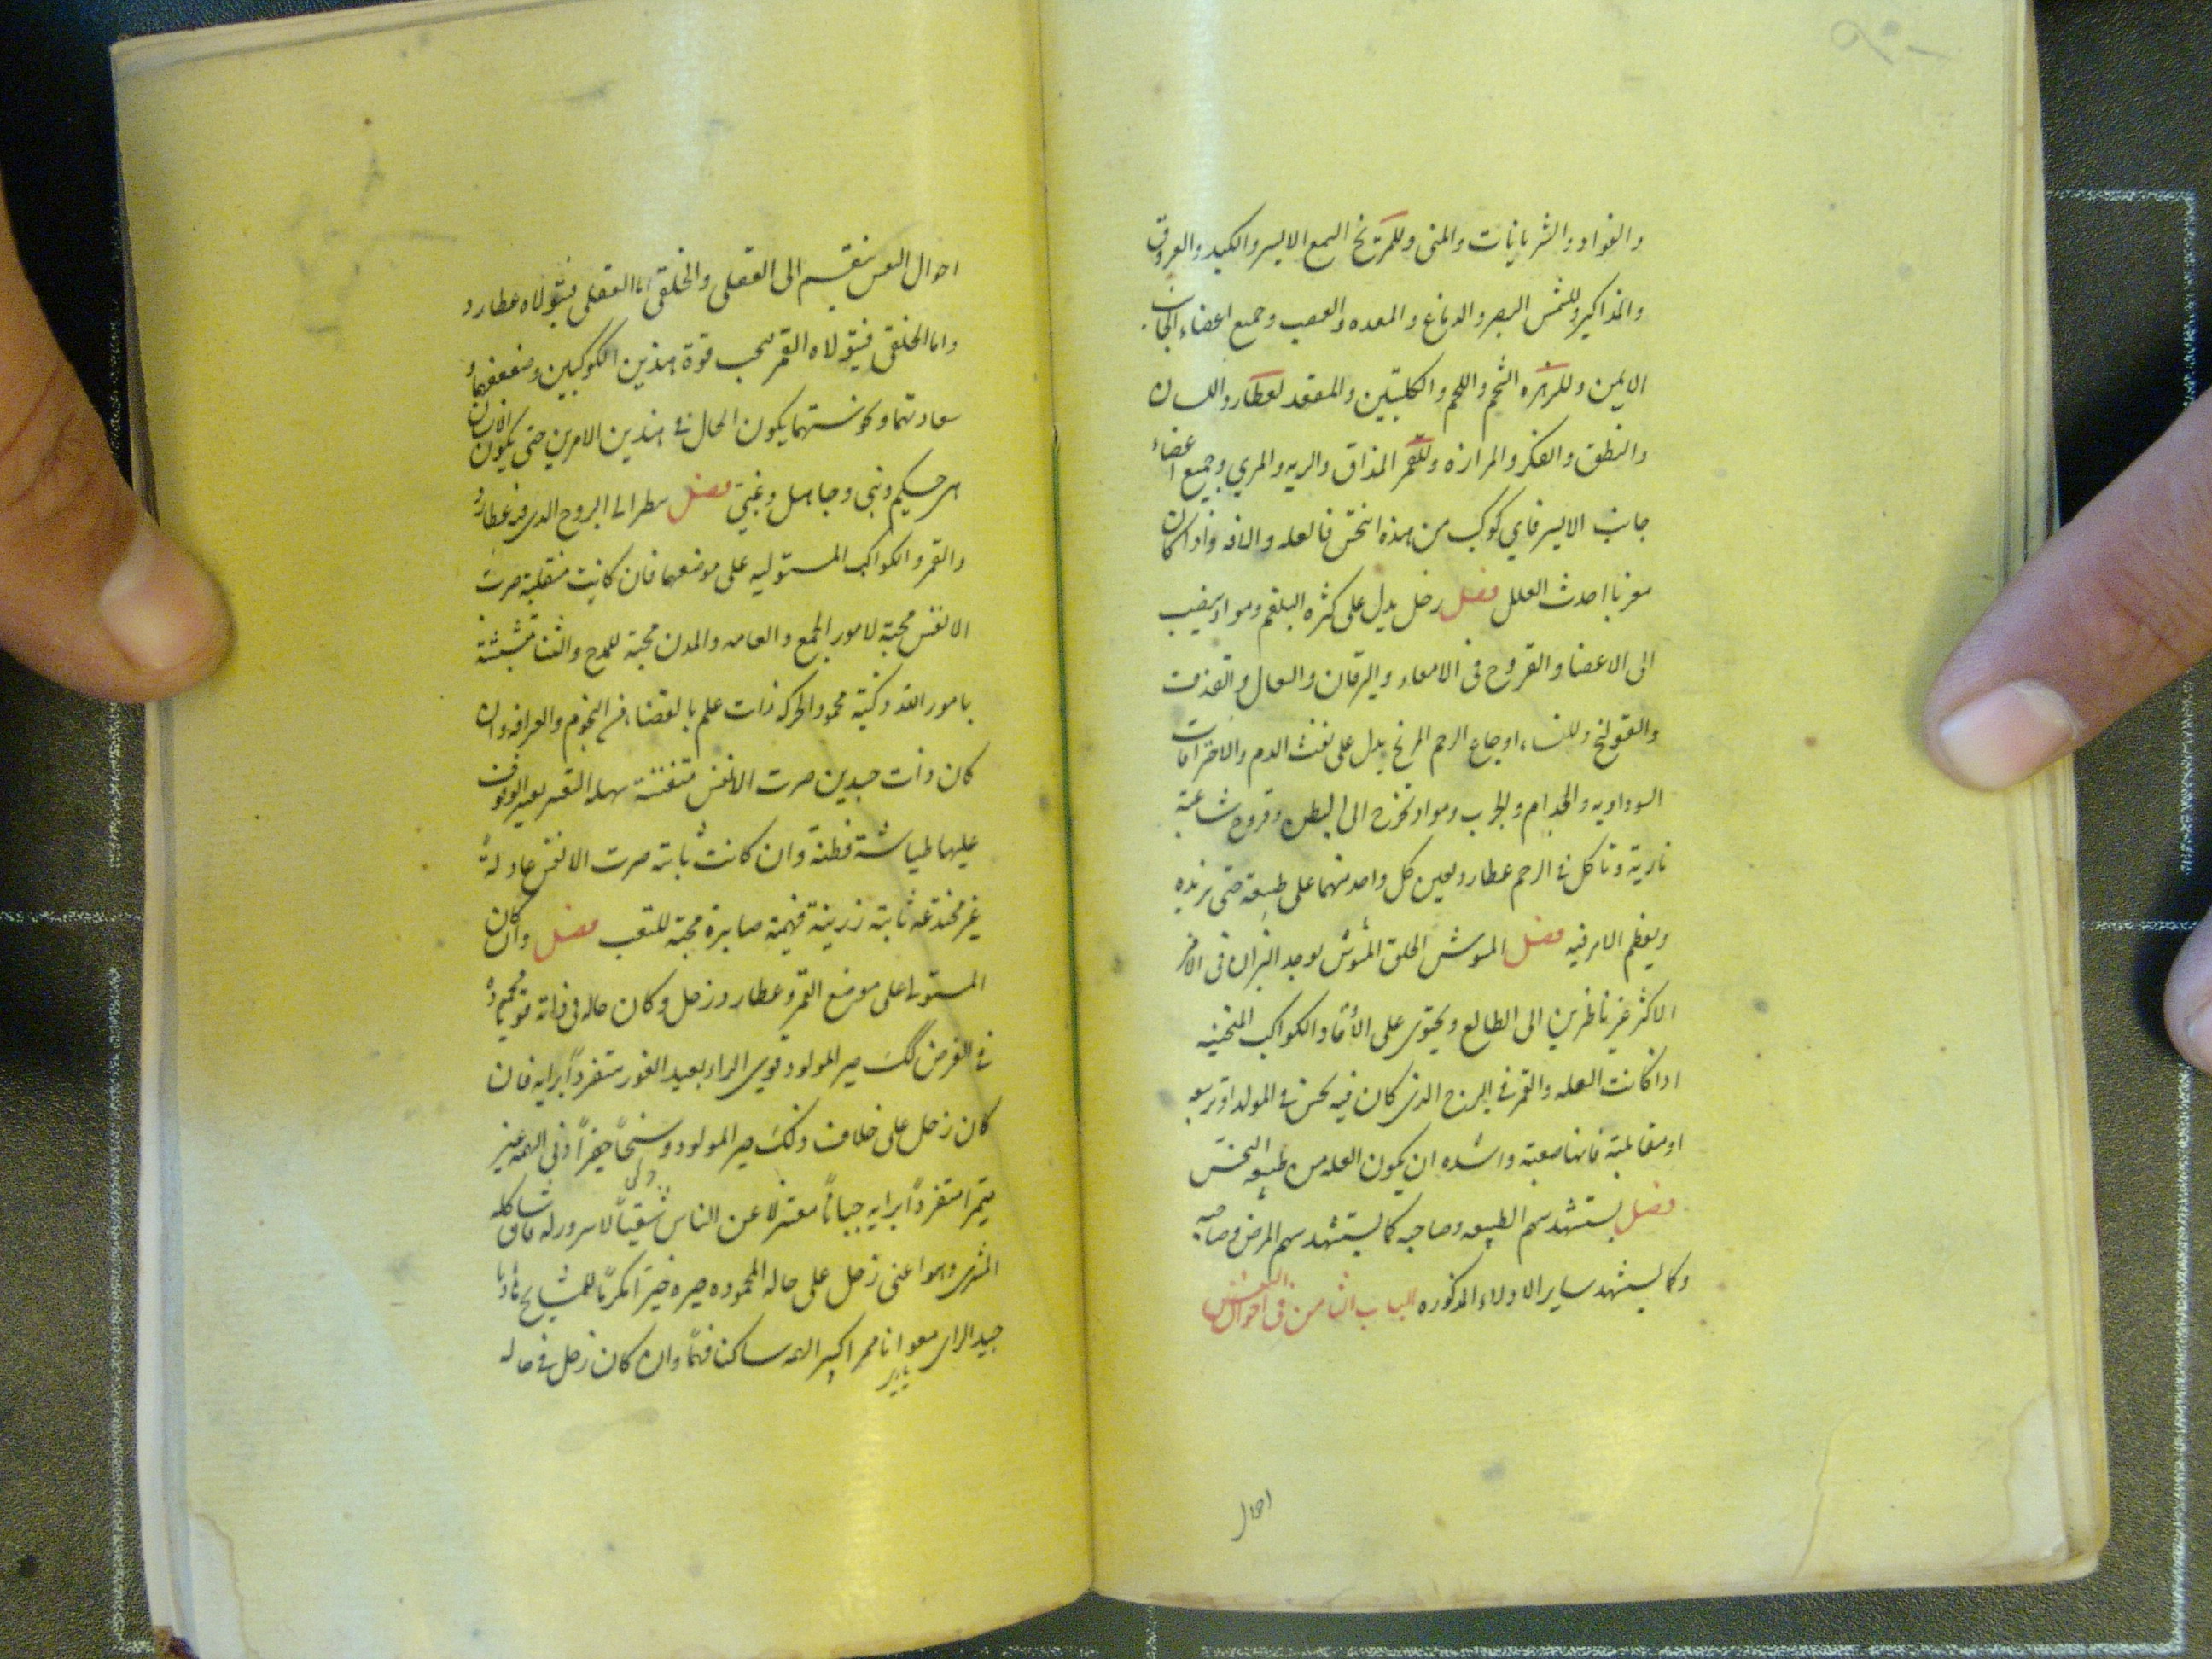 والفواد والشريانات والمنى وللمريخ السمع الايسر والكبد والعروق
والمذاكير وللشمس البصر والدماغ والمعده والعصب وجميع اعضاء الجانب
الايمن وللزهره الشحم واللحم والكليتين والمقعد لعطارد اللسان
والنطق والفكر والمراره وللقمر المذاق والريه والمري وجميع اعضاء
جانب الايسر فاي كوكب من هذه انتحس فالعله والافه واذا كان
مغربا احدث العلل فصل زحل يدل على كثره البلغم ومواد يصيب
الى الاعضا والقروح فى الامعاء واليرقان والسعال والقذف
والقولنج وللنساء اوجاع الرحم المريخ يدل على نفث الدم والاحتراقات
السوداويه والجذام والجرب ومواد تخرج الى البطن وقروح ساعية
نارية وتاكل فى الرحم عطارد يعين كل واحد منهما على طبيعته حتى يزيده
ويعظم الامر فيه فصل المسوش الخلق المشوش يوجد النيران فى الامر
الاكثر غير ناظرين الى الطالع ويحتوى على الاوتاد الكواكب المنحسه
اذا كانت العله والقمر فى البرج الذى كان فيه نحس فى المولد او تربيعه
او مقابلته فانها صعبة واشده ان يكون العله من طبيعه النحس
فصل يستشهد سهم الطبيعه وصاحبه كما يستشهد سهم المرض وصاحبه
وكما يستشهد ساير الادلاء المذكوره الباب الثامن فى احوال النفس
احوال
احوال النفس ينقسم الى العقلى والخلقى اما العقلى فيتولاه عطارد
واما الخلقى فيتولاه القمر فبحسب قوة هذين الكوكبين وضعفهما و
سعادتهما ونحوستهما يكون الحال فى هذين الامرين حتى يكون الانسان
من حكيم ونبى وجاهل وغبي فصل ينظر الى البروج الذى فيه عطارد
والقمر والكواكب المستوليه على موضعهما فان كانت منقلبة صيرت
الانفس محبة لامور الجمع والعامه والمدن محبة للمدح والثنا متشبثة
بامور الله ذكية محمود الحركه ذات علم بالقضاء فى النجوم والعرافه وان
كان ذات جسدين صيرت الانفس متفننة سهله التغير بعيد الوقوف
عليها طياشة فطنة وان كانت ثابته صيرت الانفس عادلةً
غير مختدعه ثابته رزينة فهيمة صابرة محبة للتعب فصل وان كان
المستولى على موضع القمر وعطارد زحل وكان حاله فى ذاته قويا محموده
فى الغرض لك صير المولود قوى الراء بعيد الغور متفرداً برايه فان
كان زحل على خلاف ذلك صير المولود وسخاً حقيراً دنى الهمه غير
متفرداً برايه جباناً معتزلا عن الناس شقياً لا سرور له فان شاكله
المشترى وهو اعنى زحل على حاله المحموده صيره خيرا مكرما للمشايخ هاديا
جيد الراى معوانا كبير الهمه ساكنا فهما وان كان زحل فى حاله